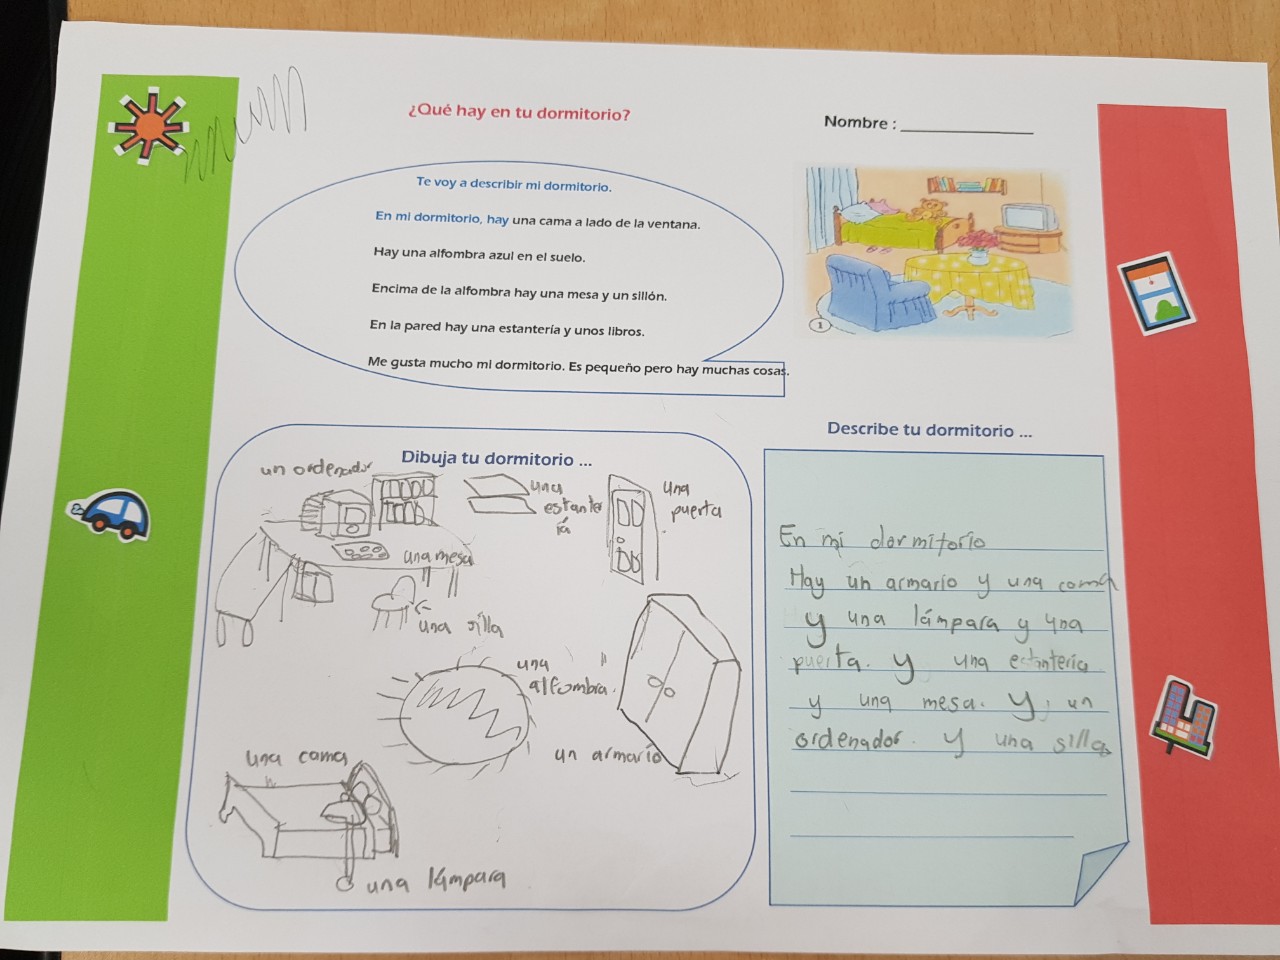 ¿Qué hay en tu dormitorio?
Nombre : ______________
Te voy a describir mi dormitorio.
En mi dormitorio, hay una cama a lado de la ventana.
Hay una alfombra azul en el suelo.
Encima de la alfombra hay una mesa y un sillón.
En la pared hay una estantería y unos libros.
Me gusta mucho mi dormitorio. Es pequeño pero hay muchas cosas.
1
Dibuja tu dormitorio ...
un ordenador
una
estante
ía
una
puerta
una mesa
una silla
una
alfombra.
un armario
una cama
una lámpara
Describe tu dormitorio ...
En mi dormitorio
Hay un armario y una cama
y una lámpara y una
puerta. y una estintería
y una mesa. y un
ordenador. y una silla